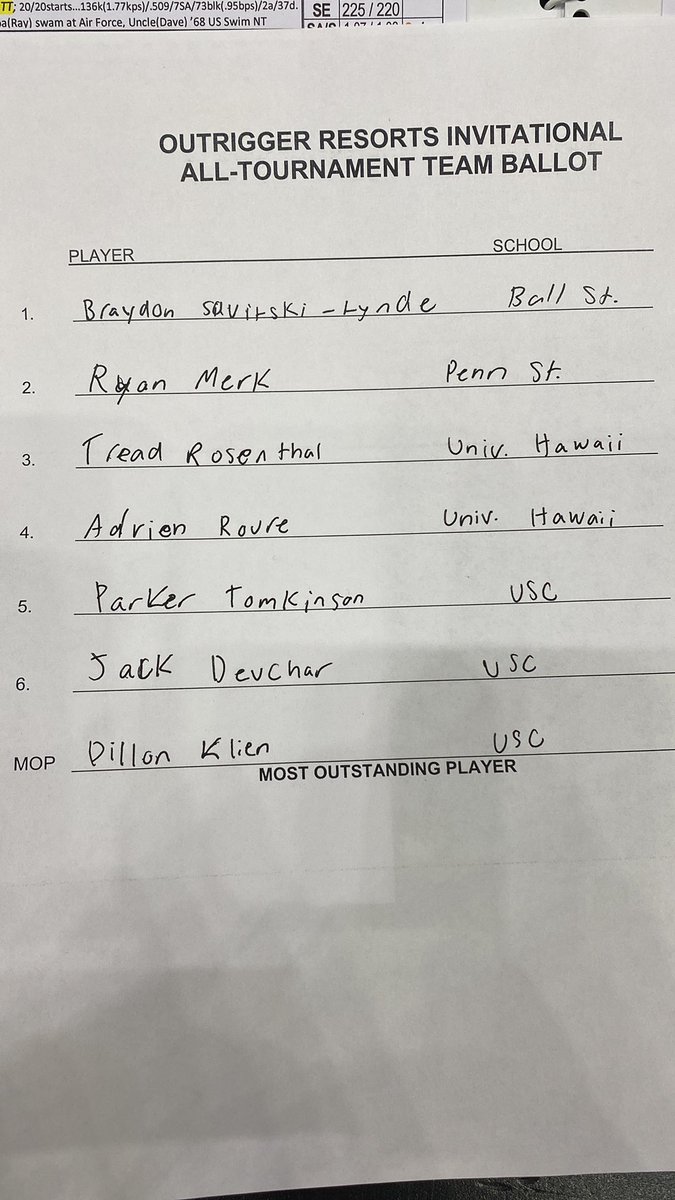 TT; 20/20starts...136k(1.77kps)/.509/7SA/73blk(.95bps)/2a/37d. SE 225 / 220
(Ray) swam at Air Force, Uncle(Dave) '68 US Swim NT
OUTRIGGER RESORTS INVITATIONAL
ALL-TOURNAMENT TEAM BALLOT
PLAYER SCHOOL
1. Braydon Savitski-Lynde Ball St.
2. Ryan Merk Penn St.
3. Tread Rosenthal Univ. Hawaii
4. Adrien Roure Univ. Hawaii
5. Parker Tomkinson USC
6. Jack Deuchar USC
MOP Dillon Klien USC
MOST OUTSTANDING PLAYER